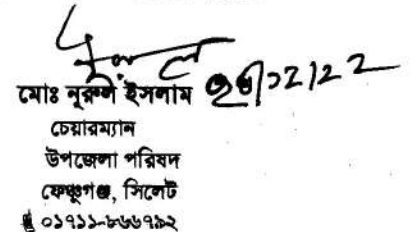 মোঃ নূরুল ইসলাম
চেয়ারম্যান
উপজেলা পরিষদ
ফেঞ্চুগঞ্জ, সিলেট
০১৭১১-৮৬৬৭৯২